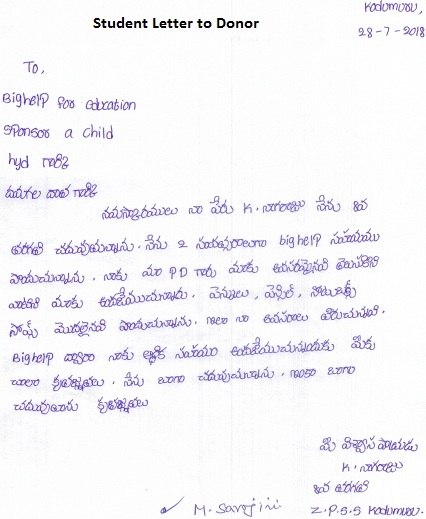 Student Letter to Donor
Kodumuru,
28-7-2018
To,
BighelP for education
sponsor a child
hyd గారికి
గారికి
నమస్కారములు నా పేరు K. నాగరాజు నేను 8వ
తరగతి చదువుతున్నాను. నేను 2 సంవత్సరాలుగా bighelp సహాయము
పొందుచున్నాను. నాకు మా PD గారు మాకు
వాటిని మాకు అందజేయుచున్నారు. పెన్నులు, పెన్సిల్, నోటుబుక్స్
సోప్స్ మొదలైనవి పొందుచున్నాను. నా అవసరాలు తీరుచున్నవి.
BighelP ద్వారా నాకు ఆర్థిక సహాయం అందజేయుచున్నందుకు మీకు
చాలా కృతజ్ఞతలు. నేను బాగా చదువుతున్నాను. ఇంకా బాగా
చదువుతాను కృతజ్ఞతలు
మీ విశ్వాసపాత్రుడు
K. నాగరాజు
8వ తరగతి
Z.P.S.S Kodumuru.
M. Sarojini